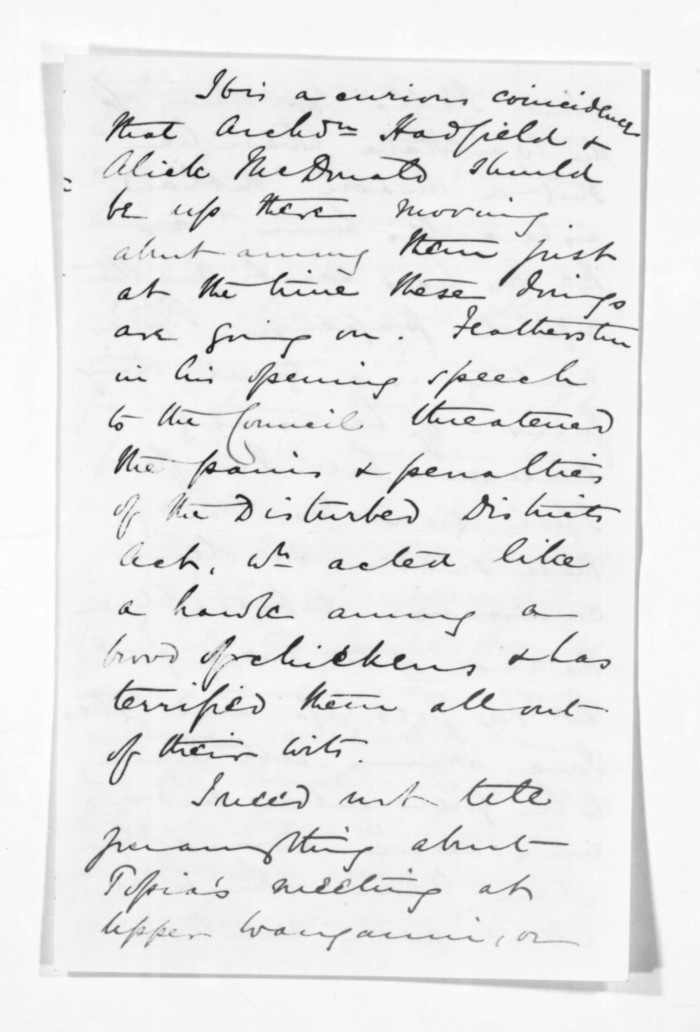 It is a curious coincidence
that Archdn Hadfield &
Alick McDonald should
be up there moving
about among them just
at the time these doings
are going on. Featherston
in his opening speech
to the Council threatened
the pains & penalties
of the Disturbed Districts
Act, wh acted like
a hawk among a
brood of chickens & has
terrified them all out
of their wits.
I need not tell
you anything about
Topia's meeting at
Upper Wanganui, or